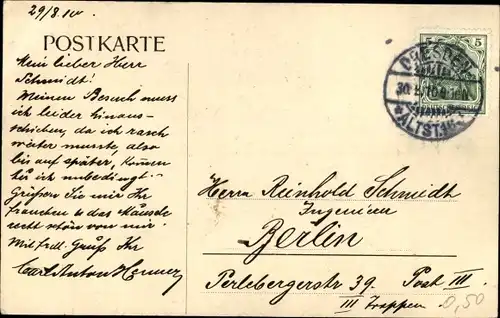 29/8.10.
POSTKARTE
Mein lieber Herr
Schmidt!
Meinen Besuch muss
ich leider hinaus=
schieben, da ich rasch
weiter musste, also
bis auf später, komme
hin ich unbedingt.
Grüßen Sie mir Ihr
Frauchen u das Mäusle
recht schön von mir.
Mit frdl. Gruß Ihr
Carl Anton
5 5
DRESDEN
30. 8. 10
* ALTST.
Herrn Reinhold Schmidt
Ingenieur
Berlin
Perlebergerstr 39. Post III
III Treppen
0,50